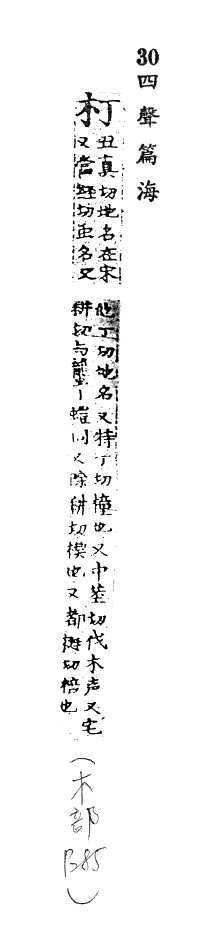 30四聲篇海
朾
丑真切地名在宋
又當經切虫名又
他丁切地名又特丁切橦也又中莖切伐木声又宅
耕切与蠪丨螘同又除耕切楔也又都挺切棓也
(木部 B85)